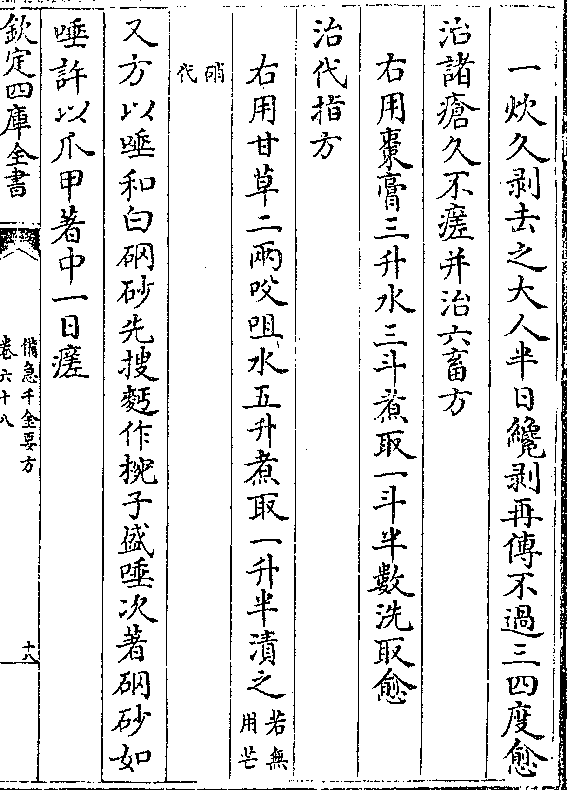 一炊久剥去之大人半日纔剥再傅不過三四度愈
治諸瘡久不瘥并治六畜方
右用棗膏三升水三斗煮取一斗半數洗取愈
治代指方
右用甘草二兩㕮咀水五升煮取一升半漬之若無用芒
硝代
又方以唾和白硇砂先搜麪作椀子盛唾次著硇砂如
唾許以爪甲著中一日瘥
欽定四庫全書
備急千金要方
卷六十八
十八